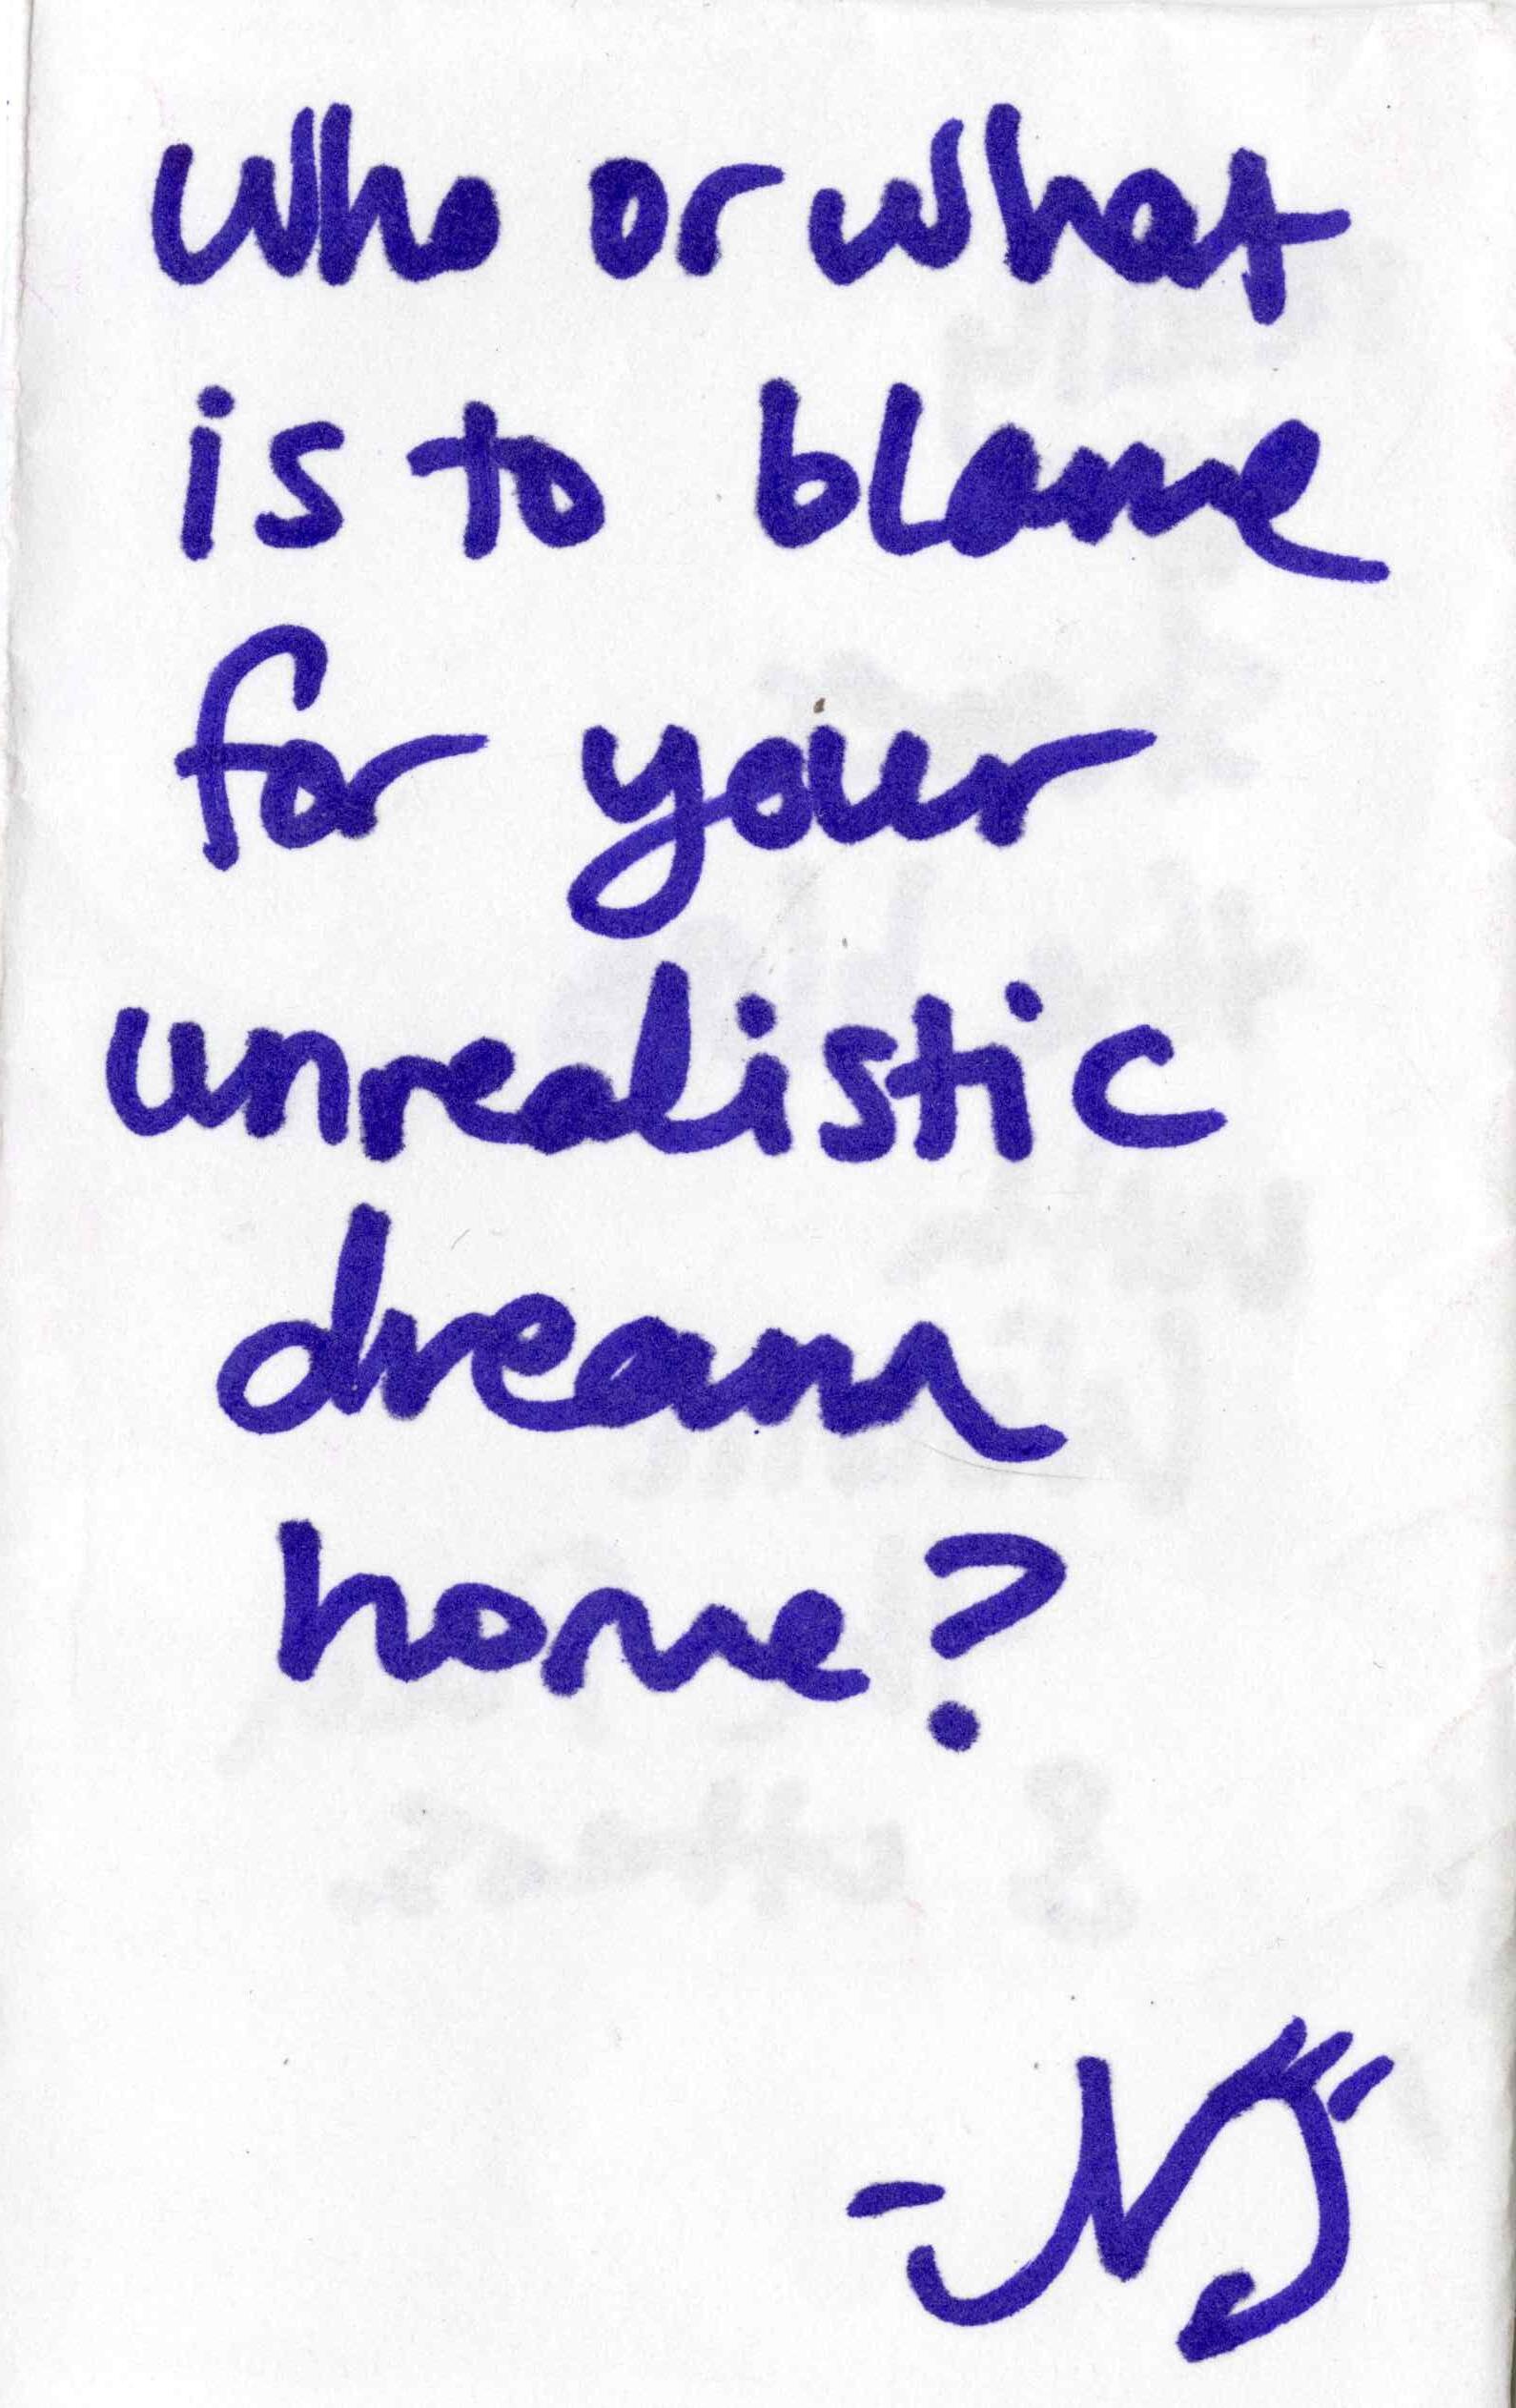 Who or what
is to blame
for your
unrealistic
dream
home?